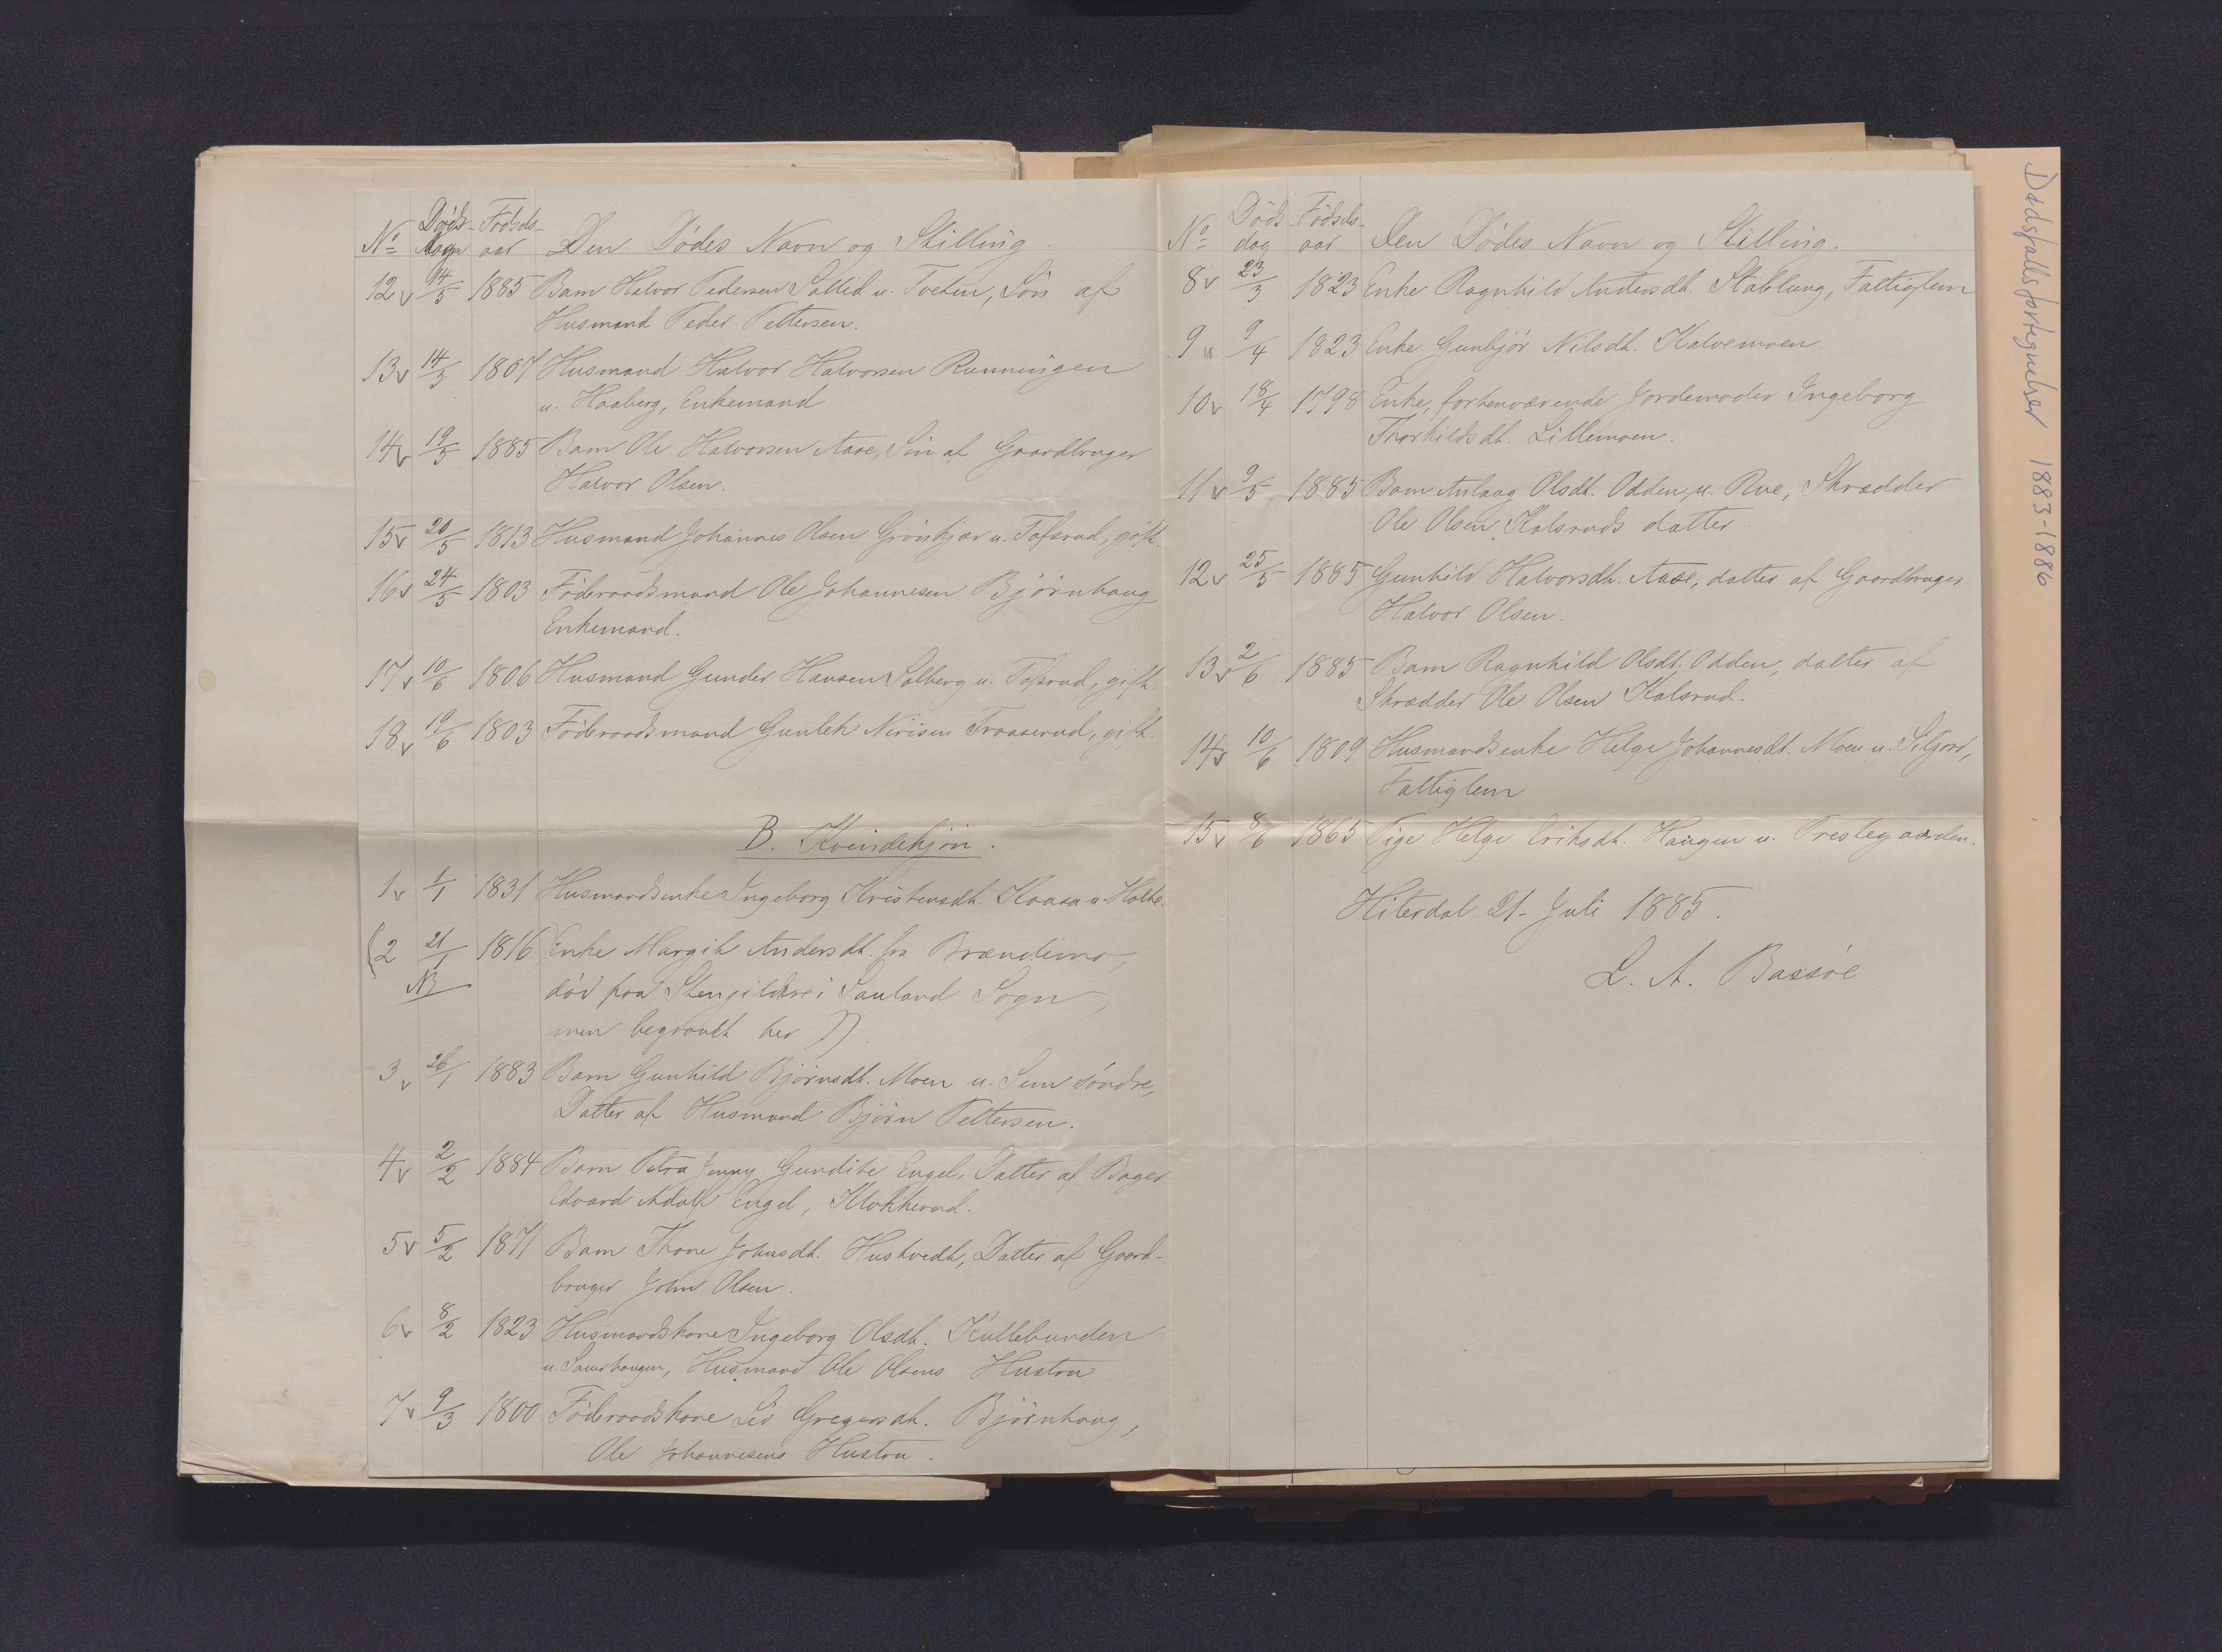 No Döds- Födsels-
dagn aar Den Dødes Navn og Stilling.
12 v 14/5 1885 Barn Halvor Pedersen Sallid u. Tveten, Sön af
Husmand Peder Pettersen.
13 v 14/5 1807 Husmand Halvor Halvorsen Runningen
u. Haaberg, Enkemand
14 v 19/5 1885 Barn Ole Halvorsen Aase, Sön af Gaardbruger
Halvor Olsen.
15 v 20/5 1813 Husmand Johannes Olsen Grönkjær u. Tofsrud, gift.
16 v 24/5 1803 Föderaadsmand Ole Johannesen Björnhaug
Enkemand.
17 v 10/6 1806 Husmand Gunder Hansen Solberg u. Tofsrud, gift.
18 v 19/6 1803 Föderaadsmand Gunlek Nirisen Traaserud, gift.
B. Kvindekjön.
1 v 1/1 1831 Husmandsenke Ingeborg Kristensdt. Kaasa u. Holte.
(2 21/1 1816 Enke Margit Andersdt. fra Brændimo,
NB död paa i Sauland Sogn,
men begravet her )
3 v 26/1 1883 Barn Gunhild Björnsdt. Moen u. Sem söndre,
Datter af Husmand Björn Pettersen.
4 v 2/2 1884 Barn Petra Jenny Gundite Engel, Datter af Bager
Edvard Adolf Engel, Klokkerud.
5 v 5/2 1871 Barn Thone Johnsdt. Hustvedt, Datter af Gaard-
bruger John Olsen.
6 v 8/2 1823 Husmandskone Ingeborg Olsdt. Kullebunden
u. Husmand Ole Olsens Hustru
7 v 9/3 1800 Föderaadskone Liv Gregersdt. Björnhaug,
Ole Johannesens Hustru.
No Döds- Födsels-
dag aar Den Dödes Navn og Stilling.
8 v 23/3 1823 Enke Ragnhild Andersdt. Stablung, Fattiglem
9 v 9/4 1823 Enke Gunbjör Nilsdt. Kalvemoen
10 v 18/4 1798 Enke, forhenværende Jordemoder Ingeborg
Thorkildsdt. Lillemoen.
11 v 9/5 1885 Barn Aslaug Olsdt. Odden u. Rue, Skrædder
Ole Olsen Kolsruds datter
12 v 25/5 1885 Gunhild Halvorsdt. Aase, datter af Gaardbruger
Halvor Olsen.
13 v 2/6 1885 Barn Ragnhild Olsdt. Odden, datter af
Skrædder Ole Olsen Kolsrud.
14 v 10/6 1809 Husmandsenke Helge Johannesdt. Moen u. Siljord,
Fattiglem
15 v 8/6 1865 Pige Helge Eriksdt. Haugen u. Prestegaarden.
Hiterdal 21- Juli 1885.
L. A. Bassöe
Dødsfallsfortegnelser 1883-1886